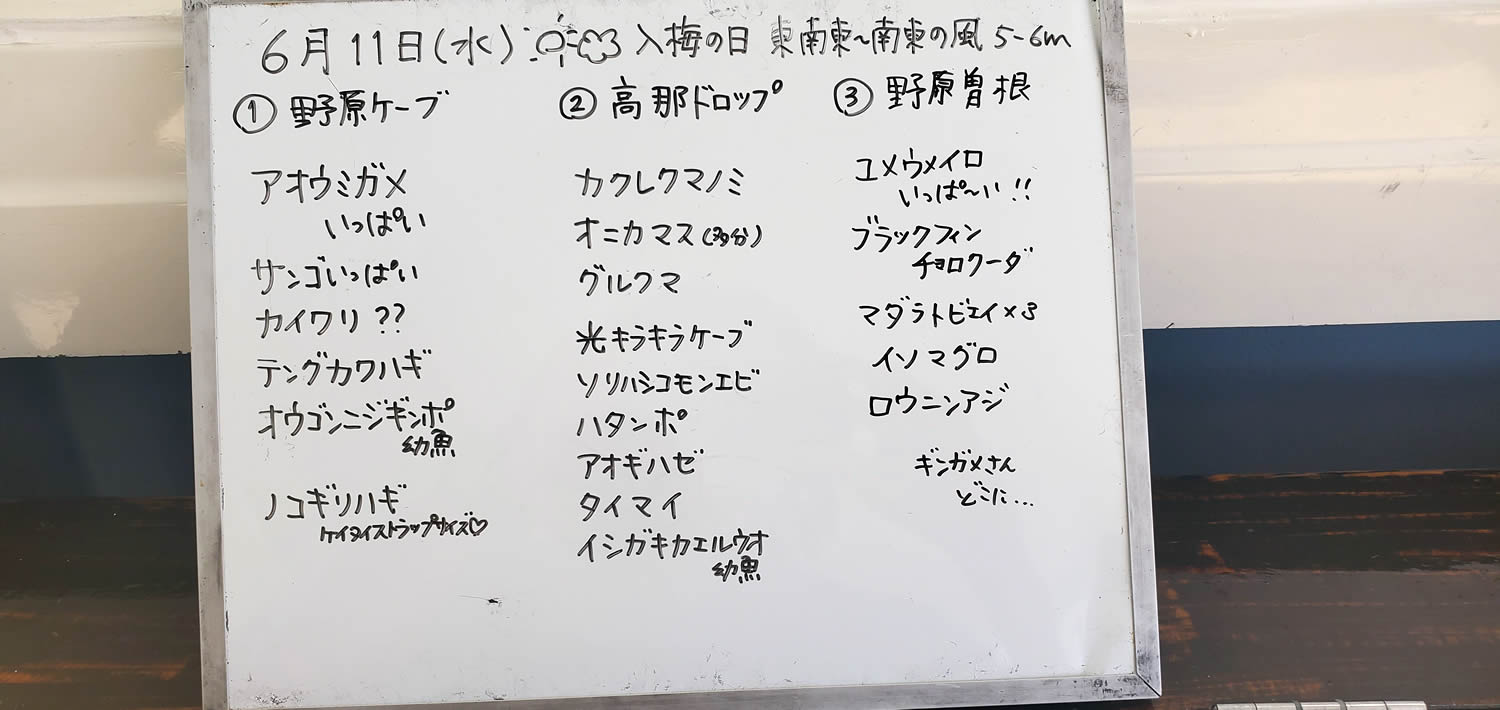 6月11日(水) 入梅の日 東南東~南東の風 5-6m
① 野原ケーブ
アオウミガメ
いっぱい
サンゴいっぱい
カイワリ ??
テングカワハギ
オウゴンニジギンポ
幼魚
ノコギリハギ
ケイタイストラップサイズ♡
② 高那ドロップ
カクレクマノミ
オニカマス(多分)
グルクマ
光キラキラケーブ
ソリハシコモンエビ
ハタンポ
アオギハゼ
タイマイ
イシガキカエルウオ
幼魚
③ 野原曽根
ユメウメイロ
いっぱ~い!!
ブラックフィン
チョロクーダ
マダラトビエイ×3
イソマグロ
ロウニンアジ
ギンガメさん
どこに...